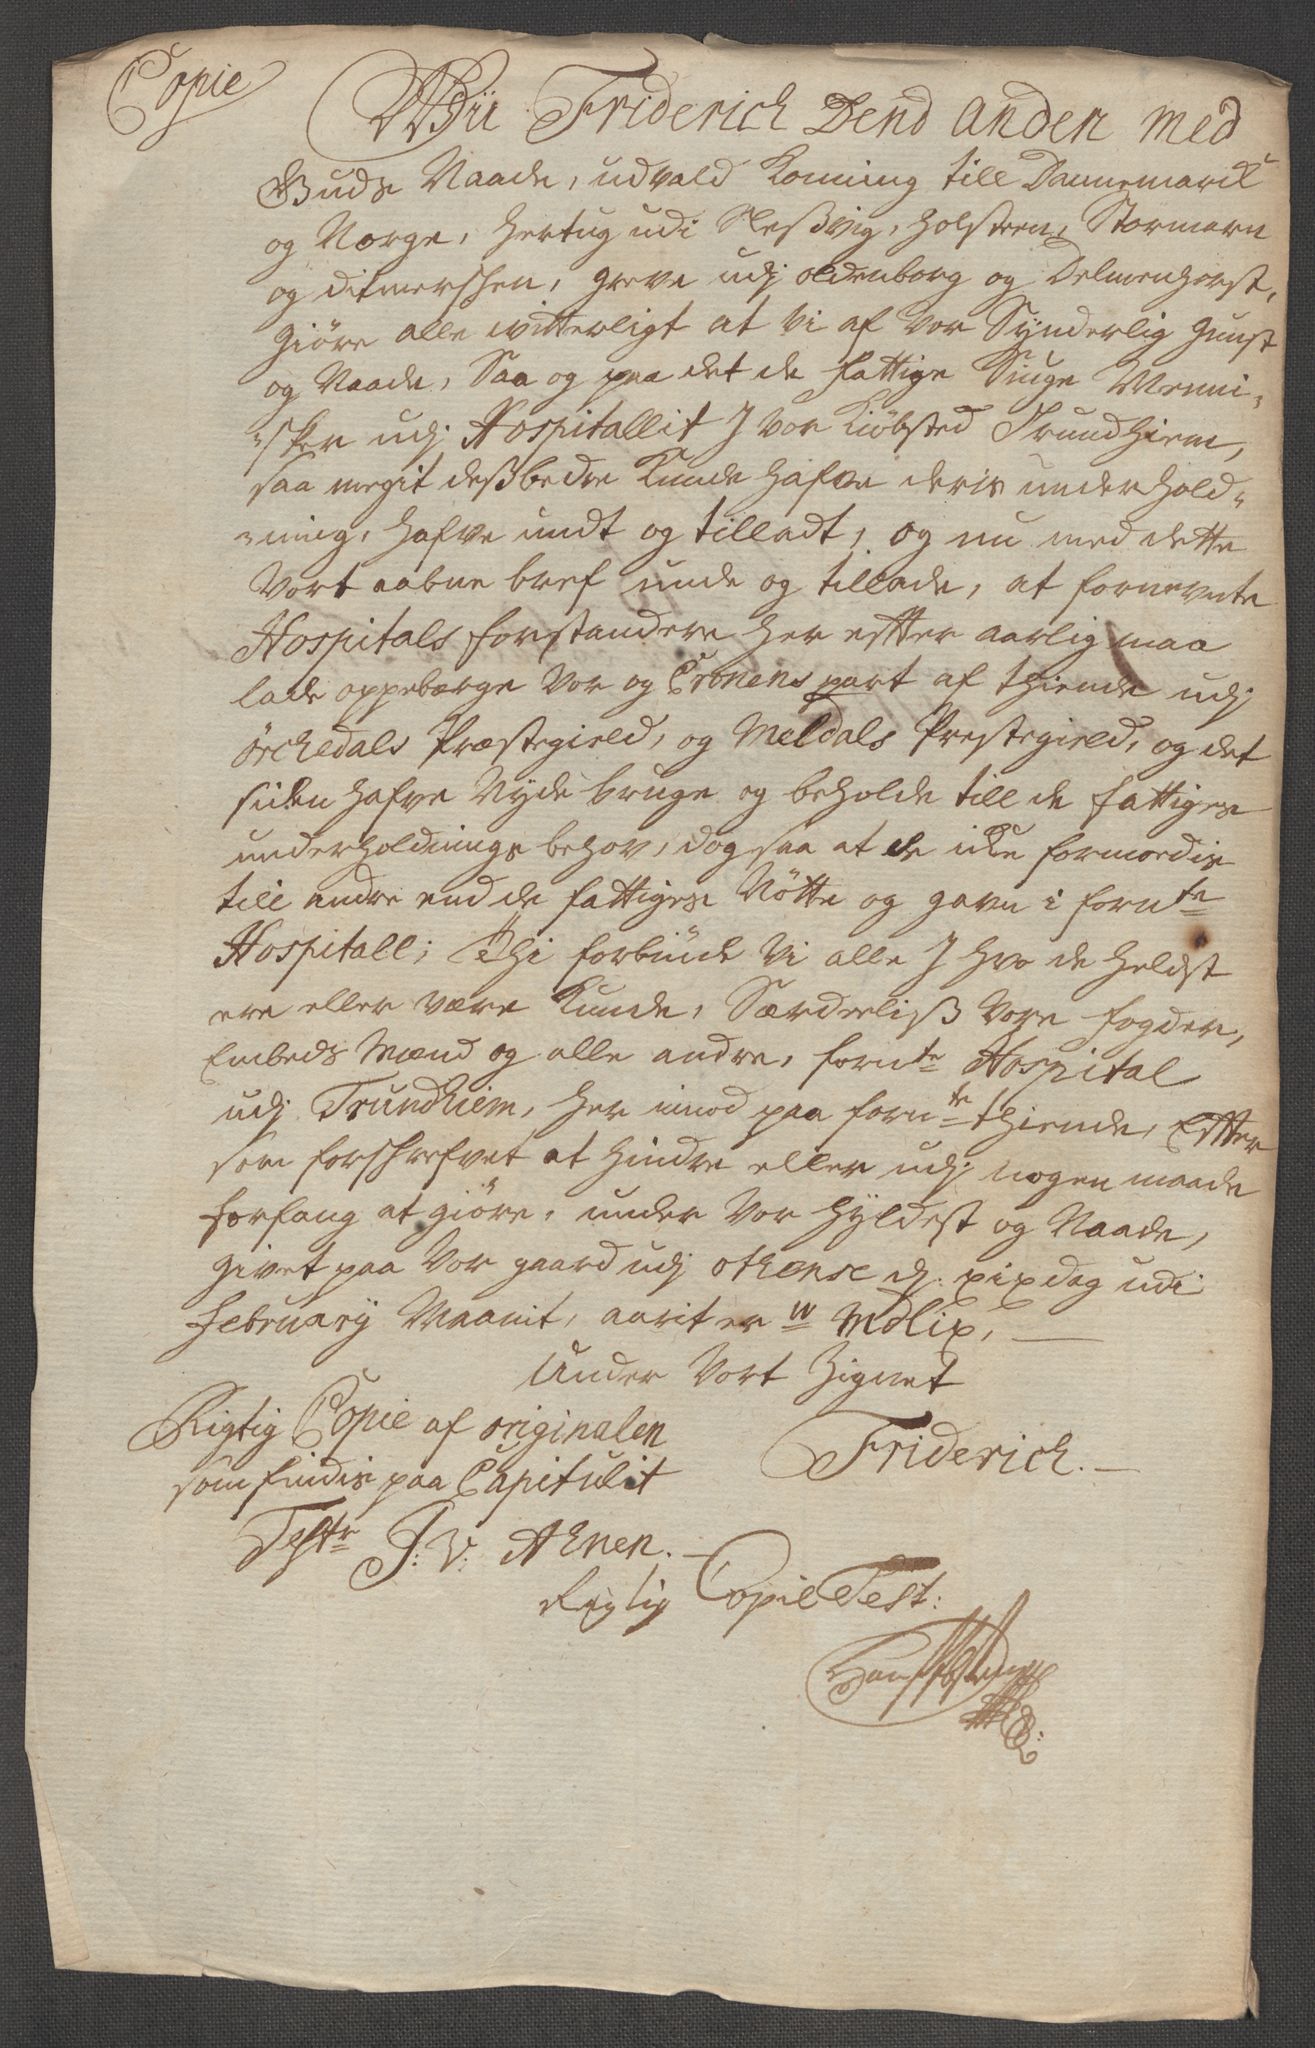 Copie
Wii Friderich Dend Anden med
Guds Naade, udvald Konning till Dannemarck
og Norge, Hertug udi Sleßvig, Holsteen, Stormarn
og Ditmerschen, Greve udj Oldenborg og Delmenhorst,
Giöre alle witterligt at Vi af Vor Synderlig Gunst
og Naade, Saa og paa det de fattige Siuge Menni-
-sker udj Hospitallit J Vor Kiöbsted Trundhiem,
saa megit deßbedre Kunde hafve deris underhold-
-ning, hafve undt og tilladt, og nu med dette
Vort aabne bref unde og tillade, at fornevnte
Hospitals forstandere her effter aarlig maa
lade oppebærge Vor og Cronens part af thiende udj
Örckedals Præstegield, og Meldals Prestegield, og det
siden hafve Nyde bruge og beholde till de fattiges
underholdnings behov, dog saa at de icke
till andre end de fattiges Nötte og gavn i fornte
Hospitall; Thi forbiude Vi alle J hvo de helst
ere eller være Kunde, Særdeeliß Vore fogder,
Embeds Mænd og alle andre, fornte Hospital
udj Trundhiem, her imod paa fornte thiende, Effter
som forschrefvet at hindre eller udj nogen maade
forfang at giöre, under Vor Hyldest og Naade,
givet paa Vor gaard udj Othense d. xix dag udi
February Maanit, aarit etc MDlix,
Under Vort Zignet
Friderich.
Rigtig Copie af originalen
som findis paa Capitulit
Testr J: V: Ahnen.
Rigtig Copie Test: